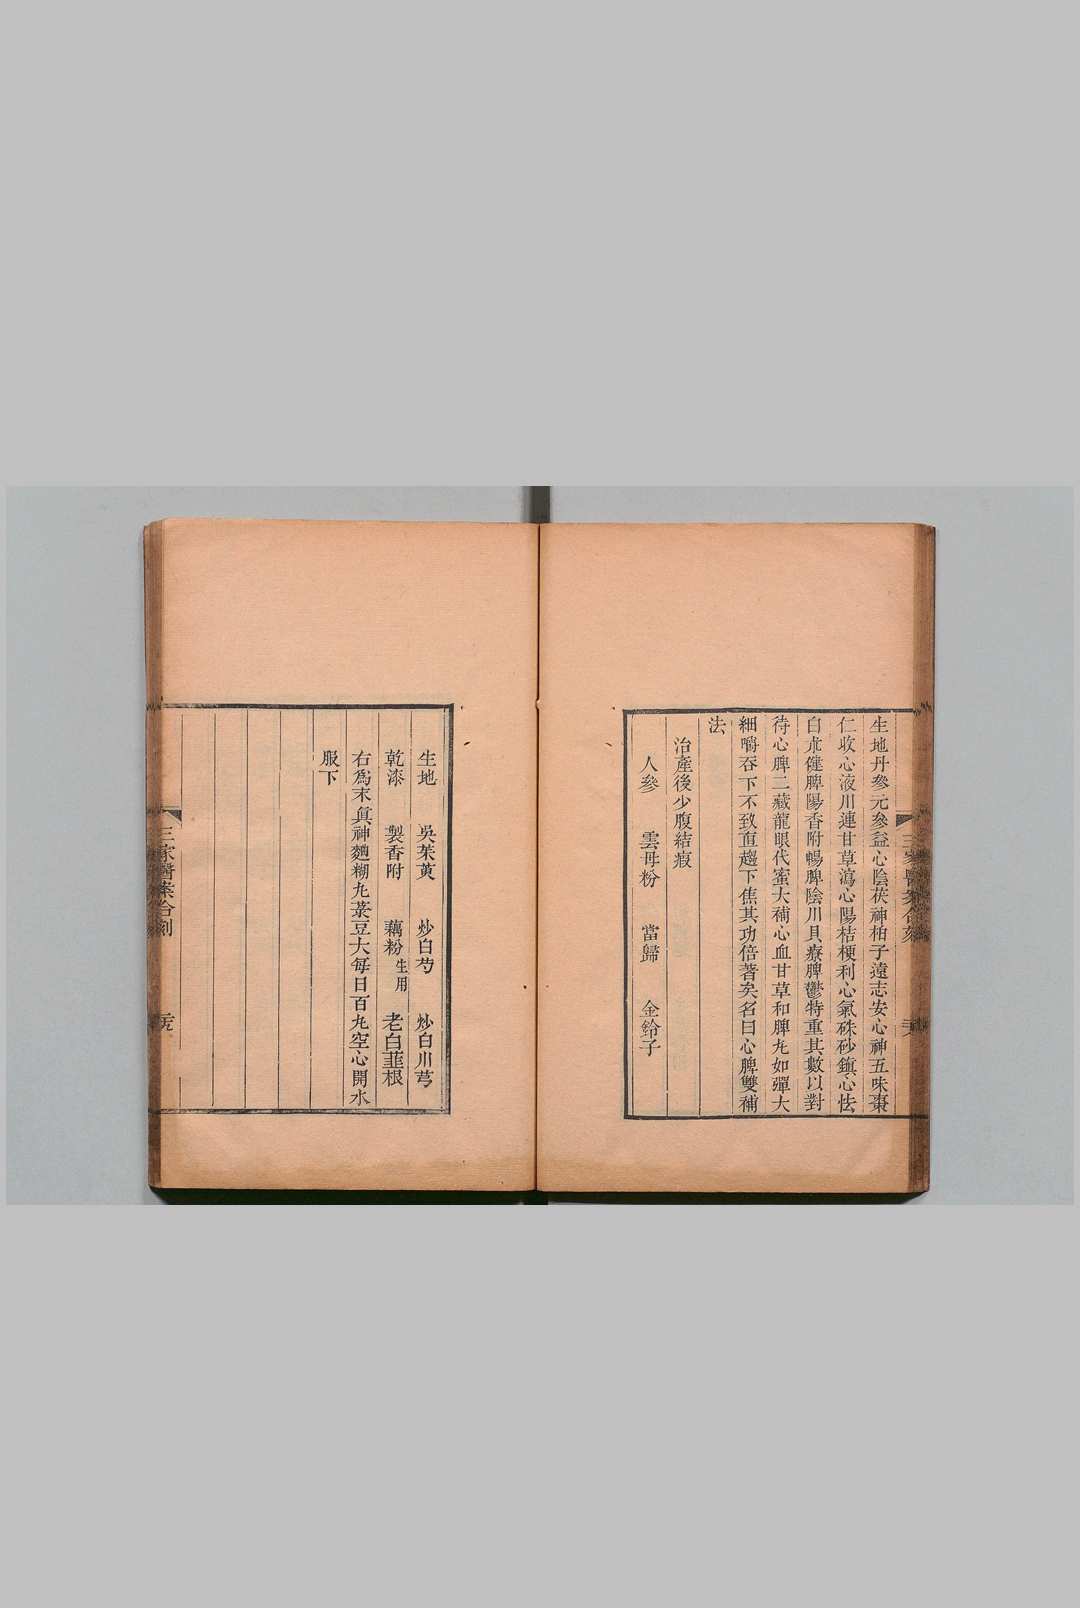 生地丹參元參益心陰茯神柏子遠志安心神五味棗
仁收心液川連甘草瀉心陽桔梗利心氣硃砂鎮心怯
白朮健脾陽香附暢脾陰川貝療脾鬱特重其數以對
待心脾二藏龍眼代蜜大補心血甘草和脾丸如彈大
細嚼吞下不致直趨下焦其功倍著矣名曰心脾雙補
法
治產後少腹結瘕
人參 雲母粉 當歸 金鈴子
生地 吳茱萸 炒白芍 炒白川芎
乾漆 製香附 藕粉生用 老白韮根
右為末真神麯糊丸菉豆大每日百丸空心開水
服下
三家醫案合刻